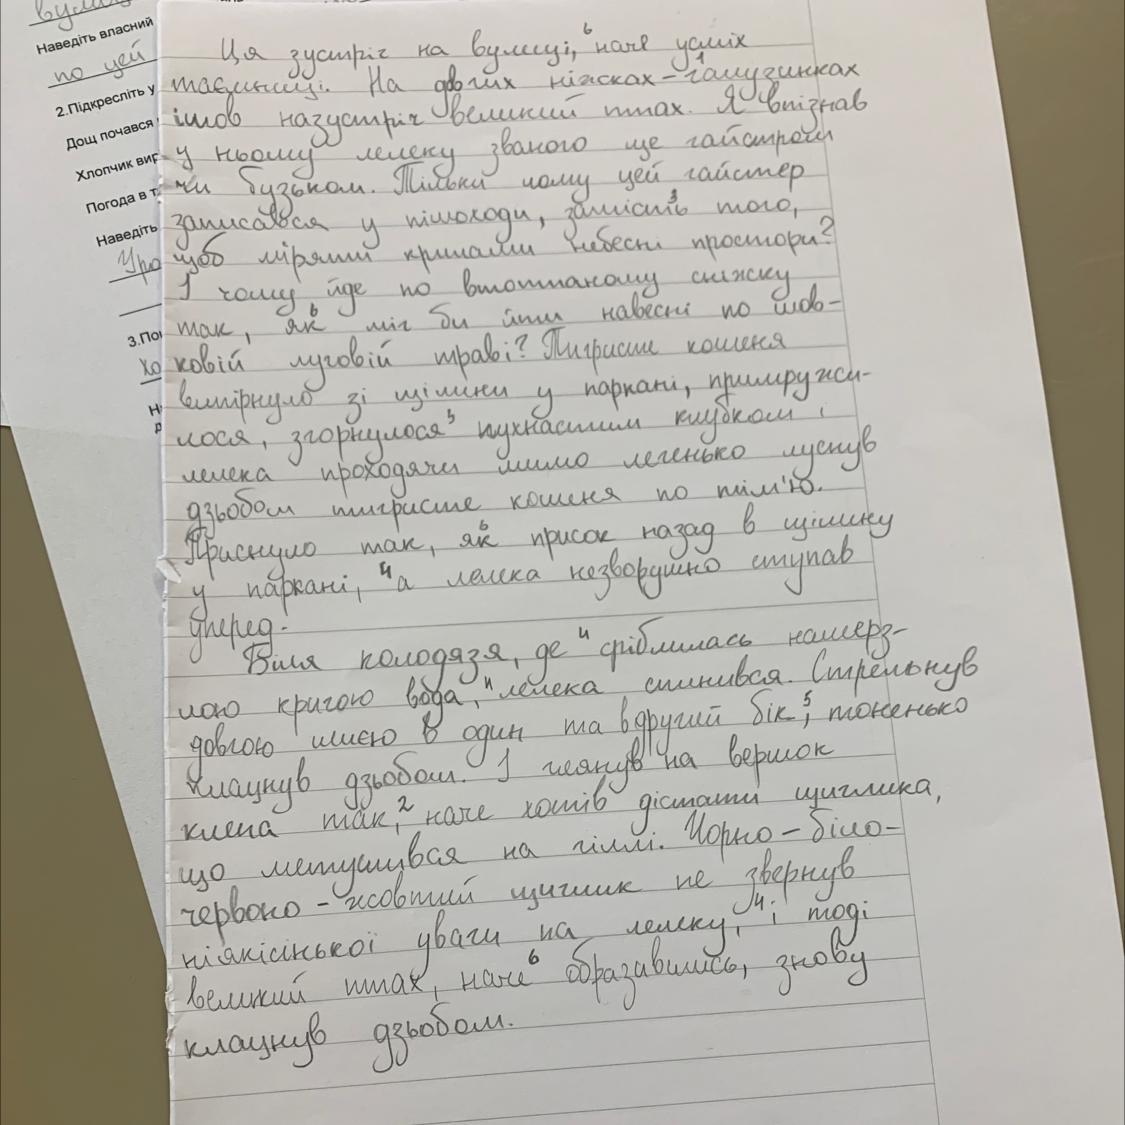 вули
Наведіть власний
по цей
2.Підкресліть у
Дощ почався
Хлопчик вир
Погода в т
Наведіть
Уро
3.По
Хо
Ця зустріч на вулиці,⁶ наче усміх
таємниці. На довгих ніжках-¹галузинках
ішов назустріч великий птах. Я впізнав
у ньому лелеку званого ще гайстром
чи бузьком. Тільки чому цей гайстер
записався у пішоходи, замість³ того,
щоб міряти крилами небесні простори?
І чому йде по втоптаному сніжку
так, як⁶ міг би йти навесні по шов-
ковій луговій траві? Тигристе кошеня
вигірнуло зі щілини у паркані, примружи-
лося, згорнулося⁵ пухнастим клубком і
лелека проходячи мимо легенько луснув
дзьобом тигристе кошеня по тім'ю.
Приснуло так, як⁶ присок назад в щілину
у паркані, ⁴а лелека незворушно ступав
уперед.
Біля колодязя, де ⁴ сріблилась намерз-
лою кригою вода, ⁴лелека спинився. Стрельнув
довгою шиєю в один та вдругий бік⁵, тоненько
клацнув дзьобом. І глянув на вершок
клена так,² наче хотів дістати щиглика,
що метушився на гіллі. Чорно-біло-
червоно-жовтий щиглик не звернув
ніякісінької уваги на лелеку, ⁴і тоді
великий птах, наче⁶ образившись, знову
клацнув дзьобом.